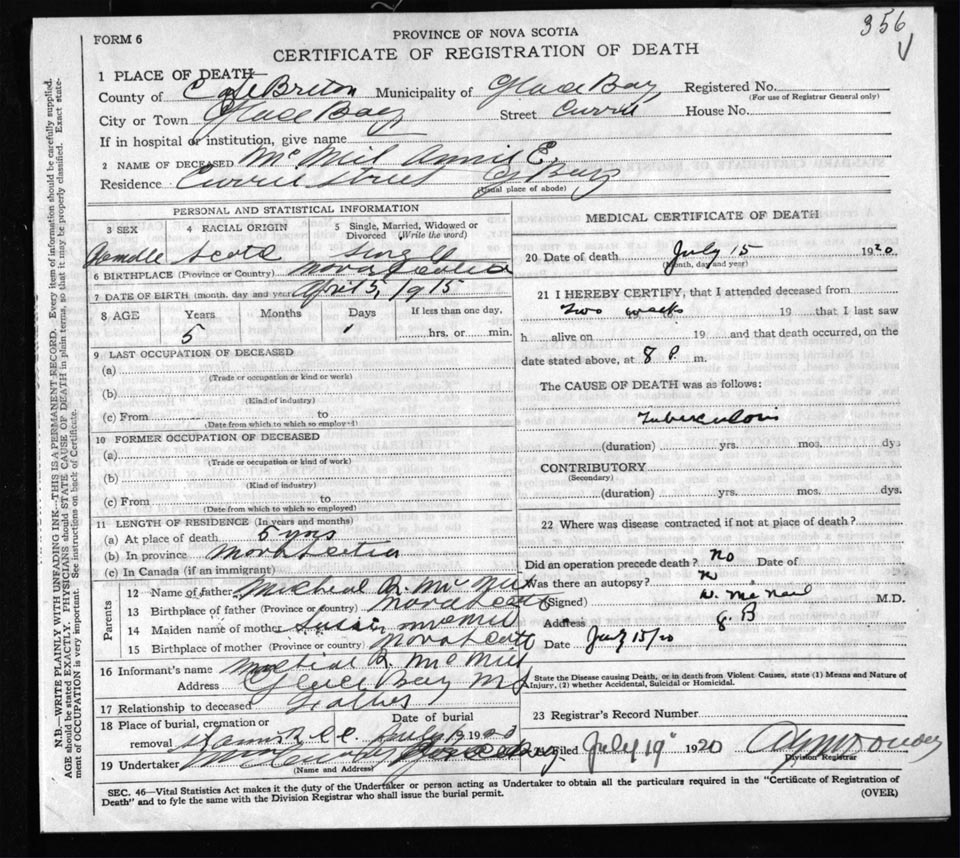 356
FORM 6
PROVINCE OF NOVA SCOTIA
CERTIFICATE OF REGISTRATION OF DEATH
N.B.—WRITE PLAINLY WITH UNFADING INK—THIS IS A PERMANENT RECORD. Every item of information should be carefully supplied.
AGE should be stated EXACTLY. PHYSICIANS should STATE CAUSE OF DEATH in plain terms, so that it may be properly classified. Exact state-
ment of OCCUPATION is very important. See instructions on back of Certificate.
1 PLACE OF DEATH—
County of Cape Breton Municipality of Glace Bay Registered No.
(For use of Registrar General only)
City or Town Glace Bay Street Currie House No.
If in hospital or institution, give name
2 NAME OF DECEASED McNeil Annie E.
Residence Currie Street G Bay
(Usual place of abode)
PERSONAL AND STATISTICAL INFORMATION
3 SEX 4 RACIAL ORIGIN 5 Single, Married, Widowed or Divorced (Write the word)
Female Scotch Single
6 BIRTHPLACE (Province or Country) Nova Scotia
7 DATE OF BIRTH (month, day and year) April 5, 1915
8 AGE Years Months Days If less than one day,
5 hrs. or min.
9 LAST OCCUPATION OF DECEASED
(a)
(Trade or occupation or kind or work)
(b)
(Kind of industry)
(c) From to
(Date from which to which so employed)
10 FORMER OCCUPATION OF DECEASED
(a)
(Trade or occupation or kind of work)
(b)
(Kind of industry)
(c) From to
(Date from which to which so employed)
11 LENGTH OF RESIDENCE (In years and months)
(a) At place of death 5 yrs
(b) In province Nova Scotia
(c) In Canada (if an immigrant)
Parents
12 Name of father Micheal R. McNeil
13 Birthplace of father (Province or country) Nova Scotia
14 Maiden name of mother McNeil
15 Birthplace of mother (Province or country) Nova Scotia
16 Informant's name Micheal R. McNeil
Address Glace Bay NS
17 Relationship to deceased Father
18 Place of burial, cremation or removal Date of burial
July 19 19
19 Undertaker Glace Bay
(Name and Address)
MEDICAL CERTIFICATE OF DEATH
20 Date of death July 15 1920
(Month, day and year)
21 I HEREBY CERTIFY, that I attended deceased from
two weeks 19 that I last saw
h alive on 19 and that death occurred, on the
date stated above, at 8 P. m.
The CAUSE OF DEATH was as follows:
Tuberculosis
(duration) yrs. mos. dys
CONTRIBUTORY
(Secondary)
(duration) yrs. mos. dys.
22 Where was disease contracted if not at place of death?
Did an operation precede death? No Date of
Was there an autopsy?
(Signed) McNeil M.D.
Address G. B
Date July 15/20
State the Disease causing Death, or in death from Violent Causes, state (1) Means and Nature of
Injury, (2) whether Accidental, Suicidal or Homicidal.
23 Registrar's Record Number
Filed July 19" 1920
Division Registrar
SEC. 46—Vital Statistics Act makes it the duty of the Undertaker or person acting as Undertaker to obtain all the particulars required in the "Certificate of Registration of
Death" and to fyle the same with the Division Registrar who shall issue the burial permit.
(OVER)